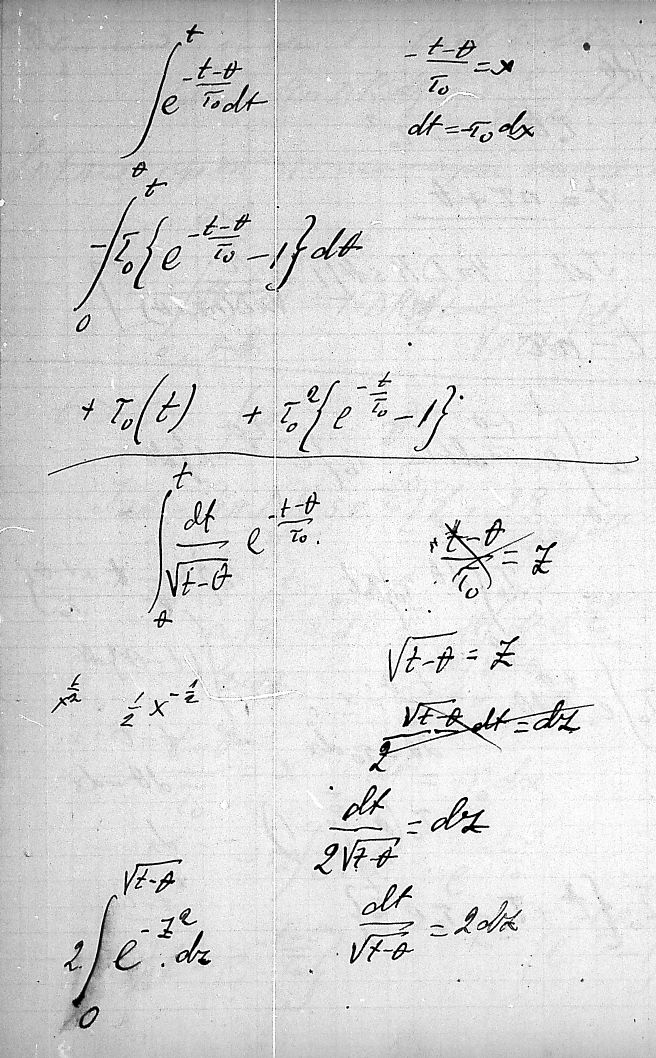 ∫_θ^t e^{-\frac{t-θ}{τ_0}} dt
-\frac{t-θ}{τ_0} = x
dt = -τ_0 dx
-∫_0^t τ_0 {e^{-\frac{t-θ}{τ_0}} - 1} dθ
+ τ_0 (t) + τ_0^2 {e^{-\frac{t}{τ_0}} - 1}
∫_θ^t \frac{dt}{\sqrt{t-θ}} e^{-\frac{t-θ}{τ_0}}.
\frac{t-θ}{τ_0} = Z
\sqrt{t-θ} = Z
x^{\frac{1}{2}} \frac{1}{2} x^{-\frac{1}{2}}
\frac{\sqrt{t-θ}}{2} dt = dz
\frac{dt}{2\sqrt{t-θ}} = dz
\frac{dt}{\sqrt{t-θ}} = 2dz
2 ∫_0^{\sqrt{t-θ}} e^{-z^2} . dz